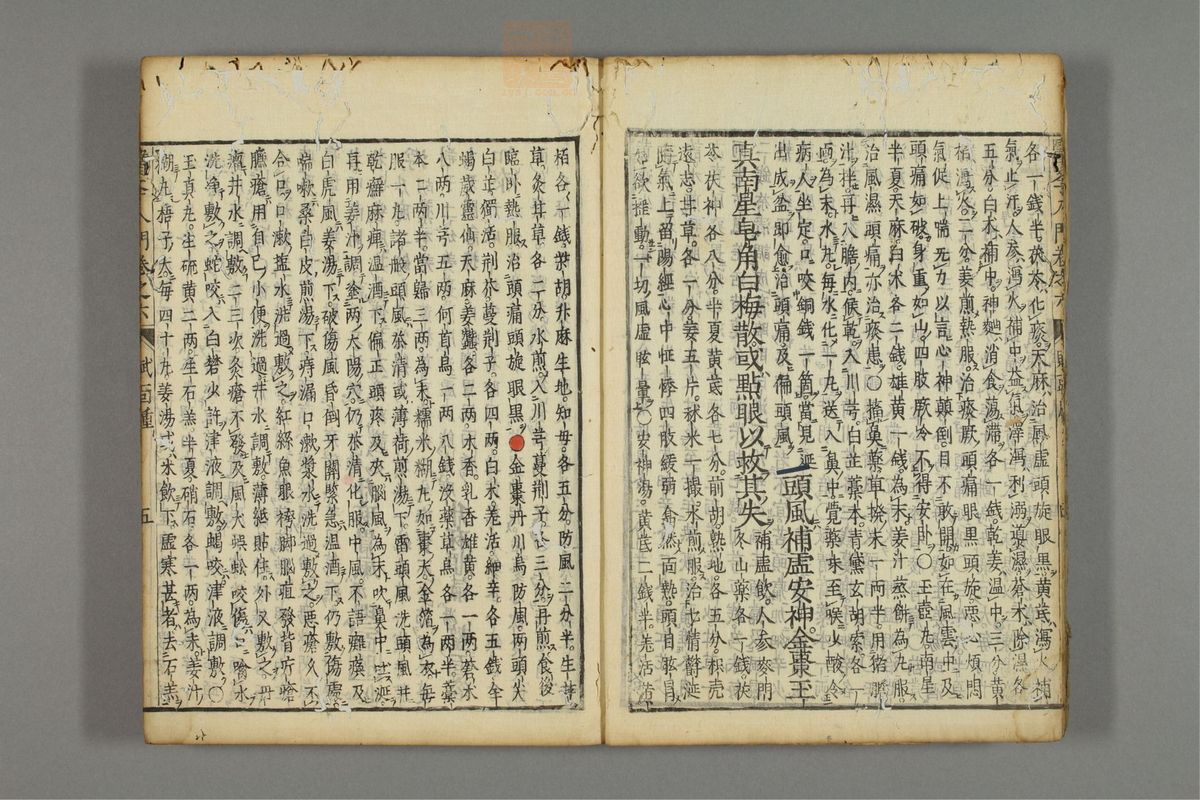 各一錢半茯苓化痰天麻治風虛頭旋眼黑黃芪瀉火補
氣止汗人參瀉火補中益氣澤瀉利溺導濕蒼朮除濕各
五分白朮補中神麯消食蕩滯各一錢乾姜溫中三分黃
栢瀉火二分姜煎熱服治痰厥頭痛眼黑頭旋惡心煩悶
氣促上喘無力以言心神顛倒目不敢開如在風雲中及
頭痛如破身重如山四肢厥冷不得安卧〇玉壺丸南星
半夏天麻白朮各二錢雄黃一錢為末姜汁蒸餅為丸服
治風濕頭痛亦治痰患〇搐鼻藥草撩末一兩半用猪膽
汁拌再入膽內候乾入川芎白芷藁本青黛玄胡索各一
為末水丸每水化一丸送入鼻中覺藥味至喉少酸令
病人坐定口咬銅錢一箇當見涎
出成盆即愈治頭痛及偏頭風 頭風補虛安神金棗王
真南星皂角白梅散或點眼以救其失 補虛飲人參麥門
冬山藥各一錢茯
苓茯神各八分半夏黃芪各七分前胡熟地各五分枳壳
遠志甘草各二分姜五片秫米一撮水煎服治七情鬱涎
隨氣上留陽經心中怔悸四散緩弱食然面熱頭目眩冒
欲推動一切風虛眩暈〇安神湯黃芪二錢半羌活黃
栢各一錢柴胡升麻生地知母各五分防風二分半生甘
草灸甘草各二分水煎入川芎蔓荊子各三分再煎食後
臨卧熱服治頭痛頭旋眼黑 金棗丹川烏防風兩頭尖
白芷獨活荊芥蔓荊子各四兩白朮羌活細辛各五錢全
蝎威靈仙天麻姜蠶各二兩木香乳香雄黃各一兩蒼朮
八兩川芎五兩何首烏一兩八錢沒藥草烏各一兩半藁
本二兩半當歸三兩為末糯米糊丸如棗大金箔為衣每
服一丸諸般頭風茶清或薄荷煎湯下雷頭風洗頭風并
乾癬麻痺溫酒下偏正頭疼及夾腦風為末吹鼻中吐涎
再用姜汁調塗兩太陽穴仍茶清化服中風不語癱瘓及
白虎風姜湯下破傷風昏倒牙關緊急溫酒下仍敷傷處
喘嗽桑白皮煎湯下痔漏口漱漿水洗過敷之惡瘡久不
合口口漱鹽水洗過敷之紅絲魚眼袴脚腦疽發背疔瘡
臁瘡用自己小便洗過井水調敷薄紙貼住外又敷之丹
瘤井水調敷二三次灸瘡不發及風犬蜈蚣咬傷口噙水
洗淨敷之蛇咬入白礬少許津液調敷蝎咬津液調敷〇
玉真丸生硫黃二兩生石羔半夏硝石各一兩為末姜汁
糊丸梧子大每四十丸姜湯或米飲下虛寒甚者去石羔
醫學入門卷之六 賦百種 五